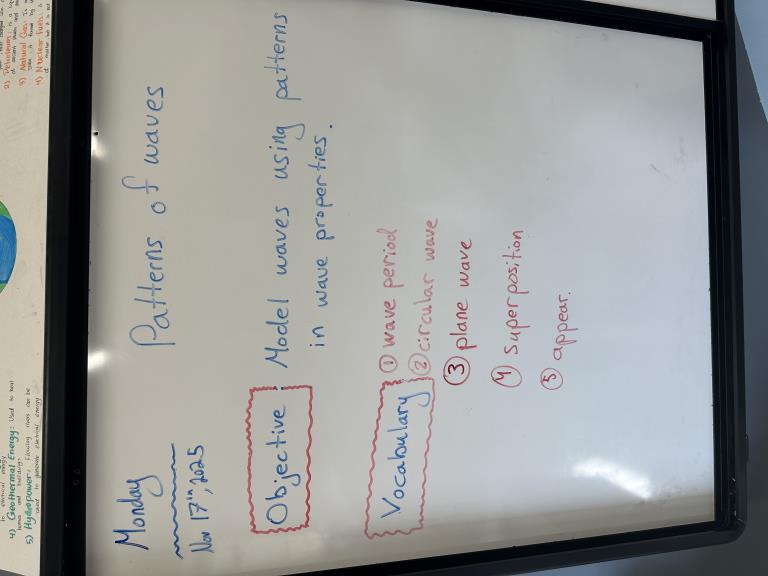 Monday
Nov 17th, 2025
Patterns of waves
Objective : Model waves using patterns
in wave properties.
Vocabulary
① wave period
② circular wave
③ plane wave
④ superposition
⑤ appear.
4) Geothermal Energy: Used to heat
homes and buildings.
5) Hydropower: Flowing rivers can be
used to generate electrical energy
3) Natural Gas:
4) Nuclear Fuels: